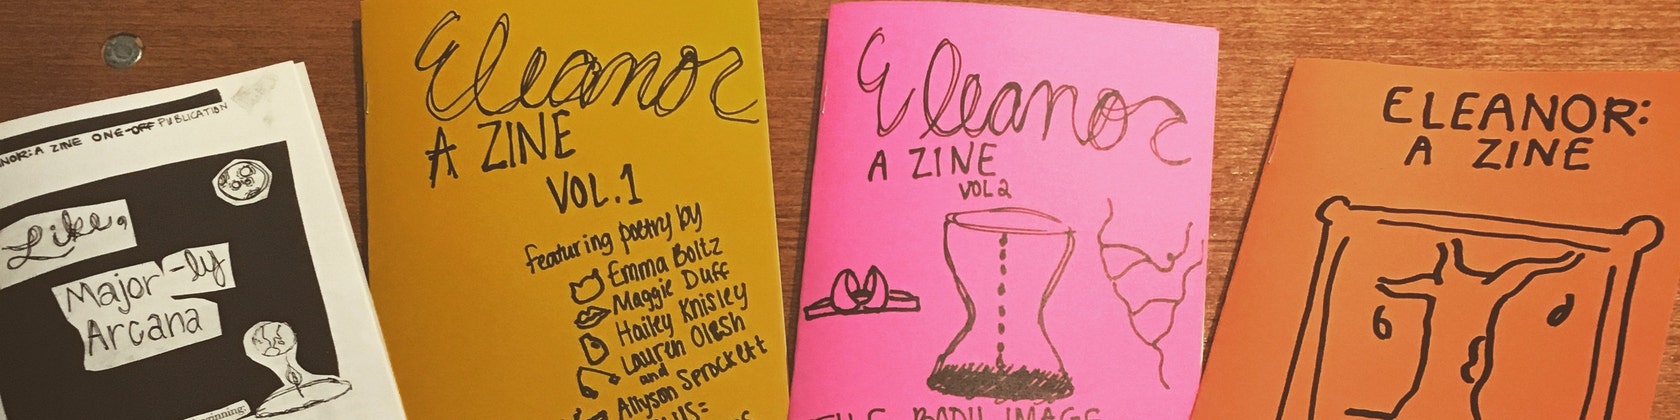 NOR: A ZINE ONE-OFF PUBLICATION
Like,
Major-ly
Arcana
Eleanor
A ZINE
VOL.1
featuring poetry by
Emma Boltz
Maggie Duff
Hailey Knisley
Lauren Olesh
and
Allyson Sprockett
Eleanor
A ZINE
VOL 2
THE BODY IMAGE
ELEANOR:
A ZINE